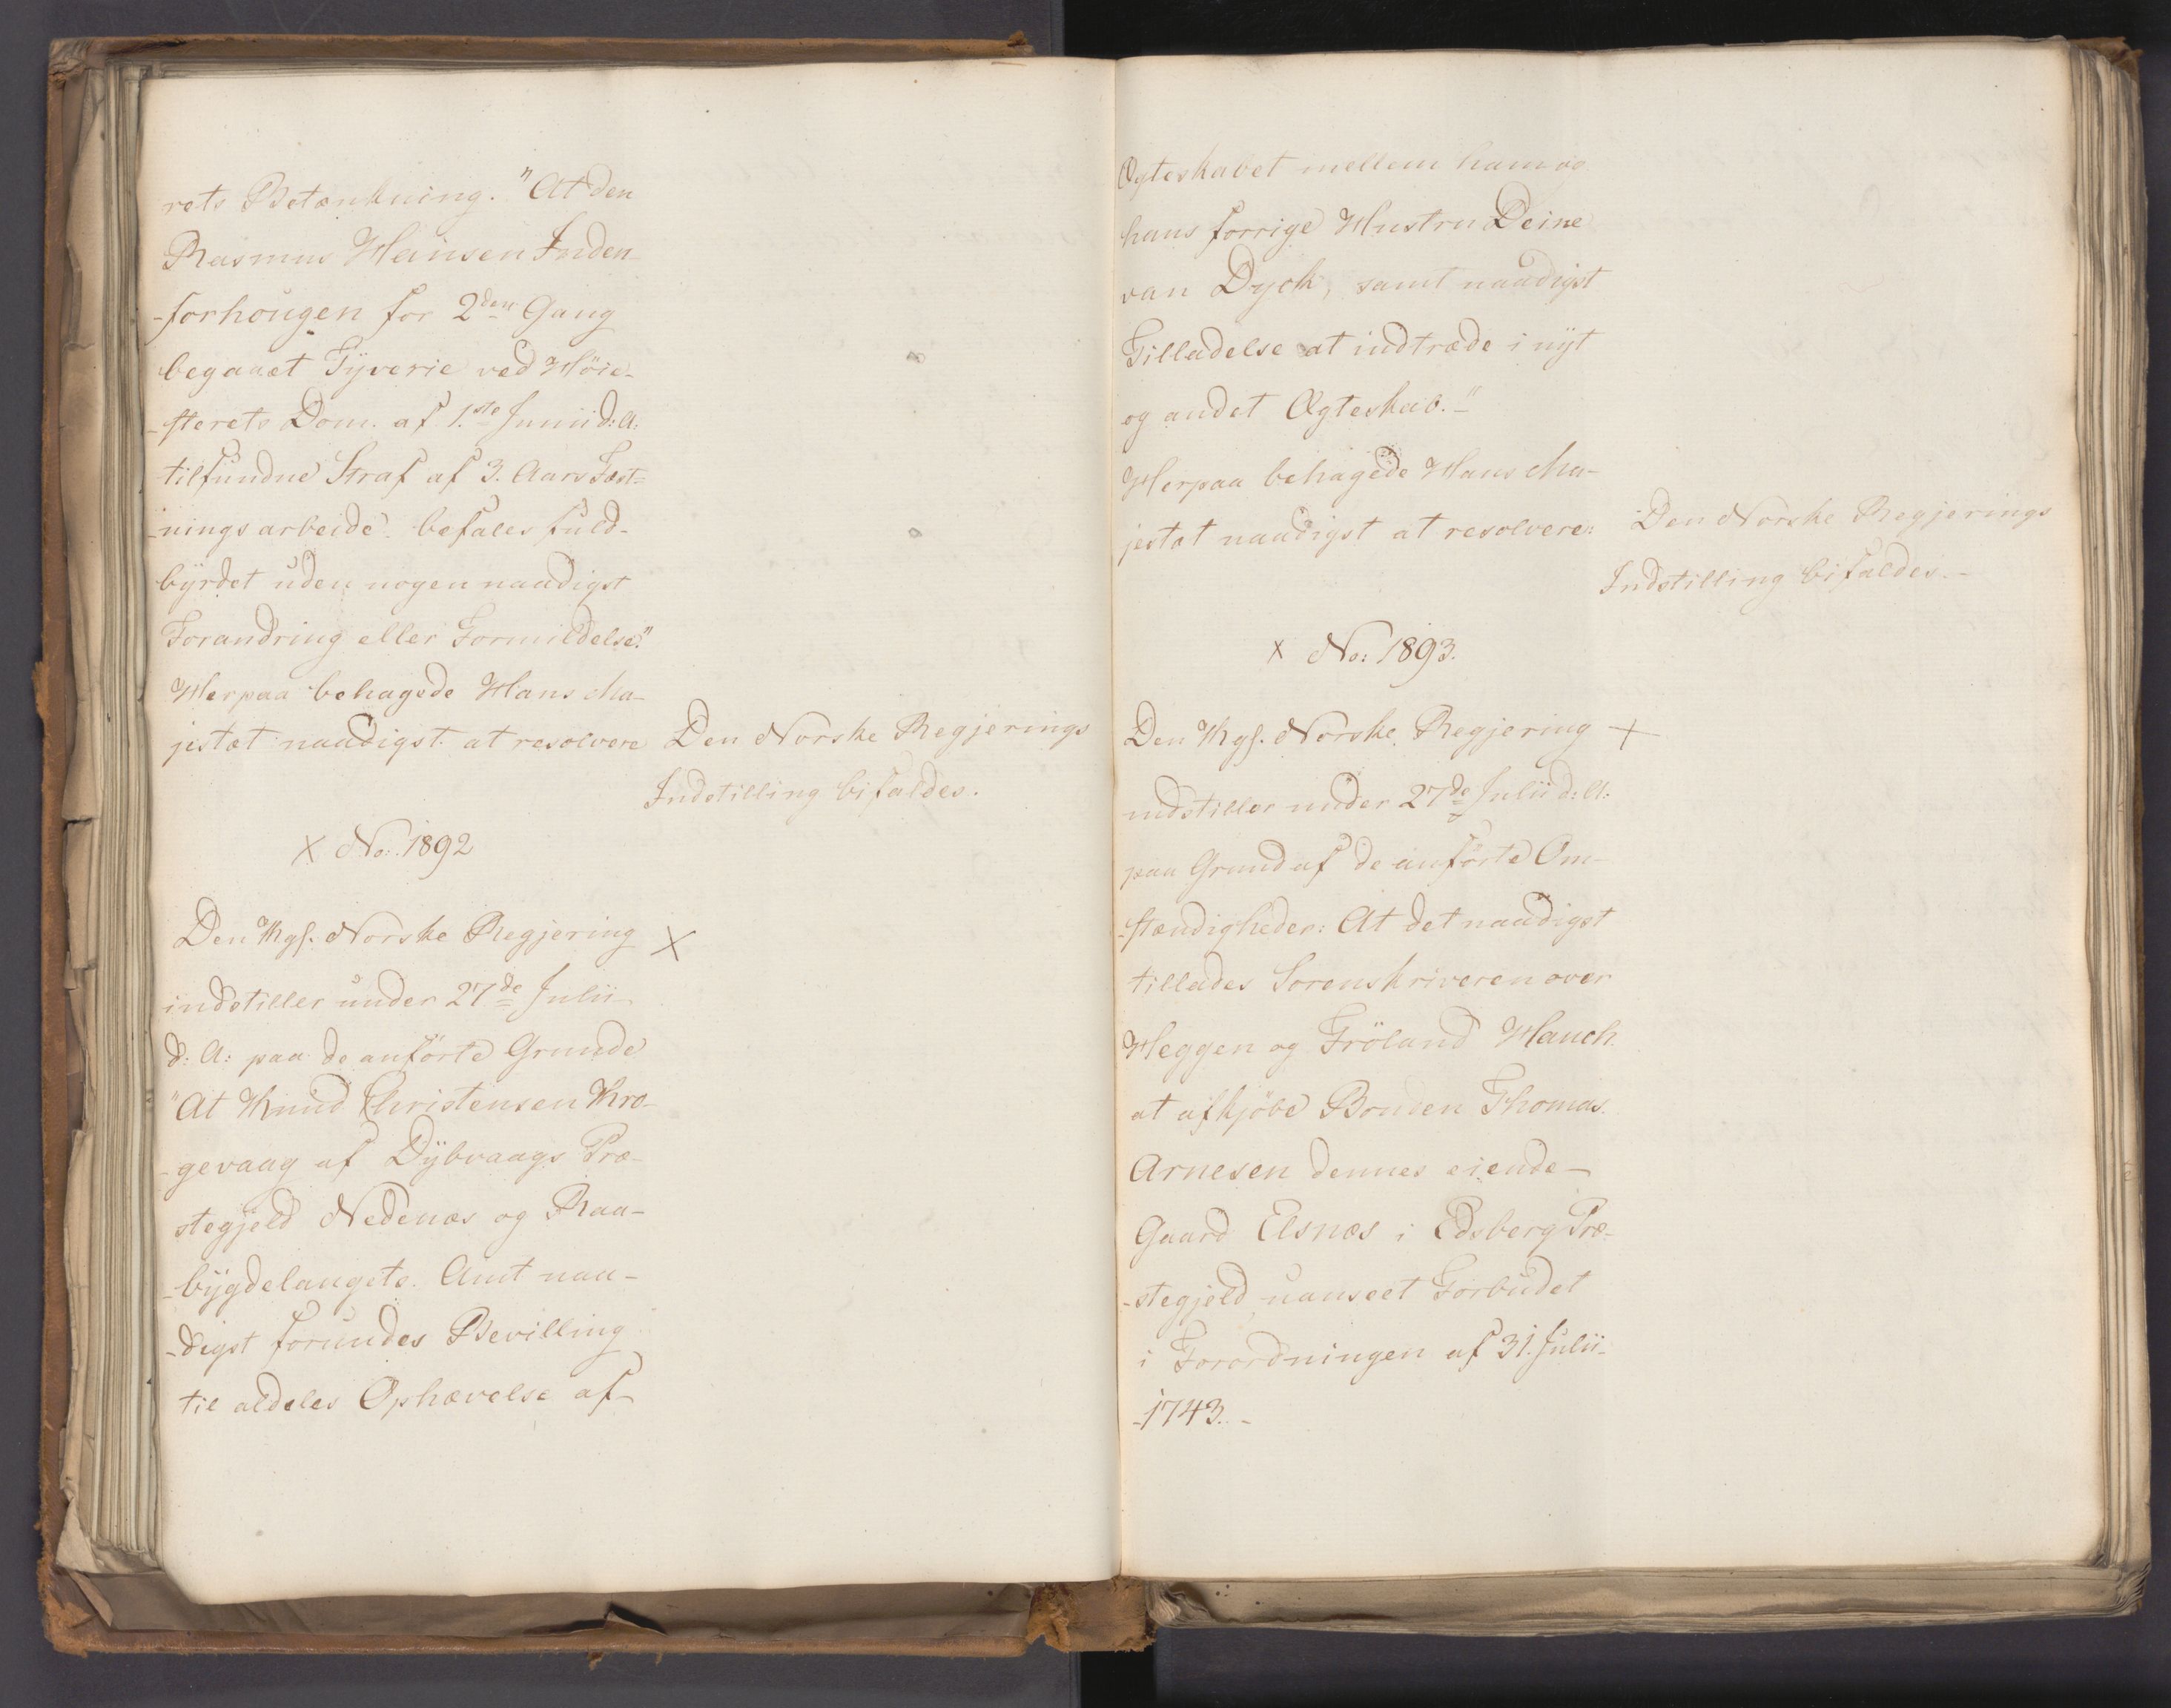 rets Betænkning. "At den
Rasmus Hansen Inden
-forhougen for 2den Gang
begaaet Tÿverie ved Höie-
-sterets Dom. af 1.ste Junii d: A:
tilfundne Straf af 3. Aars Fæst=
-nings arbeide. befales fuld-
bÿrdet uden nogen naadigst
Forandring eller Formildelse."
Herpaa behagede Hans Ma-
jestæt naadigst. at resolvere
Den Norske Regjerings
Indstilling bifaldes.
X No: 1892
Den Kgl. Norske Regjering X
indstiller under 27de Julii
d: A: paa de anförte Grunde
"At Knud Christensen Kro-
-gevaag af Dÿbvaags Præ-
stegjeld Nedenæs og Raa-
-bÿgdelaugets. Amt naa-
-digst forundes Bevilling
til aldeles Ophævelse af
Ægteskabet mellem ham og
hans forrige Hustru Deine
van Dyck, samt naadigst
Tilladelse at indtræde i nÿt
og andet Ægteskab."
Herpaa behagede Hans Ma-
jestæt naadigst at resolvere:
Den Norske Regjerings
Indstilling bifaldes.-
X No: 1893.
Den Kgl. Norske Regjering X
indstiller under 27de Julii d: A:
paa Grund af de anförte Om-
-stændigheder: At det naadigst
tillades Sorenskriveren over
Heggen og Fröland Hauch
at afkjöbe Bonden Thomas.
Arnesen dennes eiende
Gaard Elsnæs i Edsberg Præ-
-stegjeld uanseet Forbudet
i Forordningen af 31. Julii
-1743.-